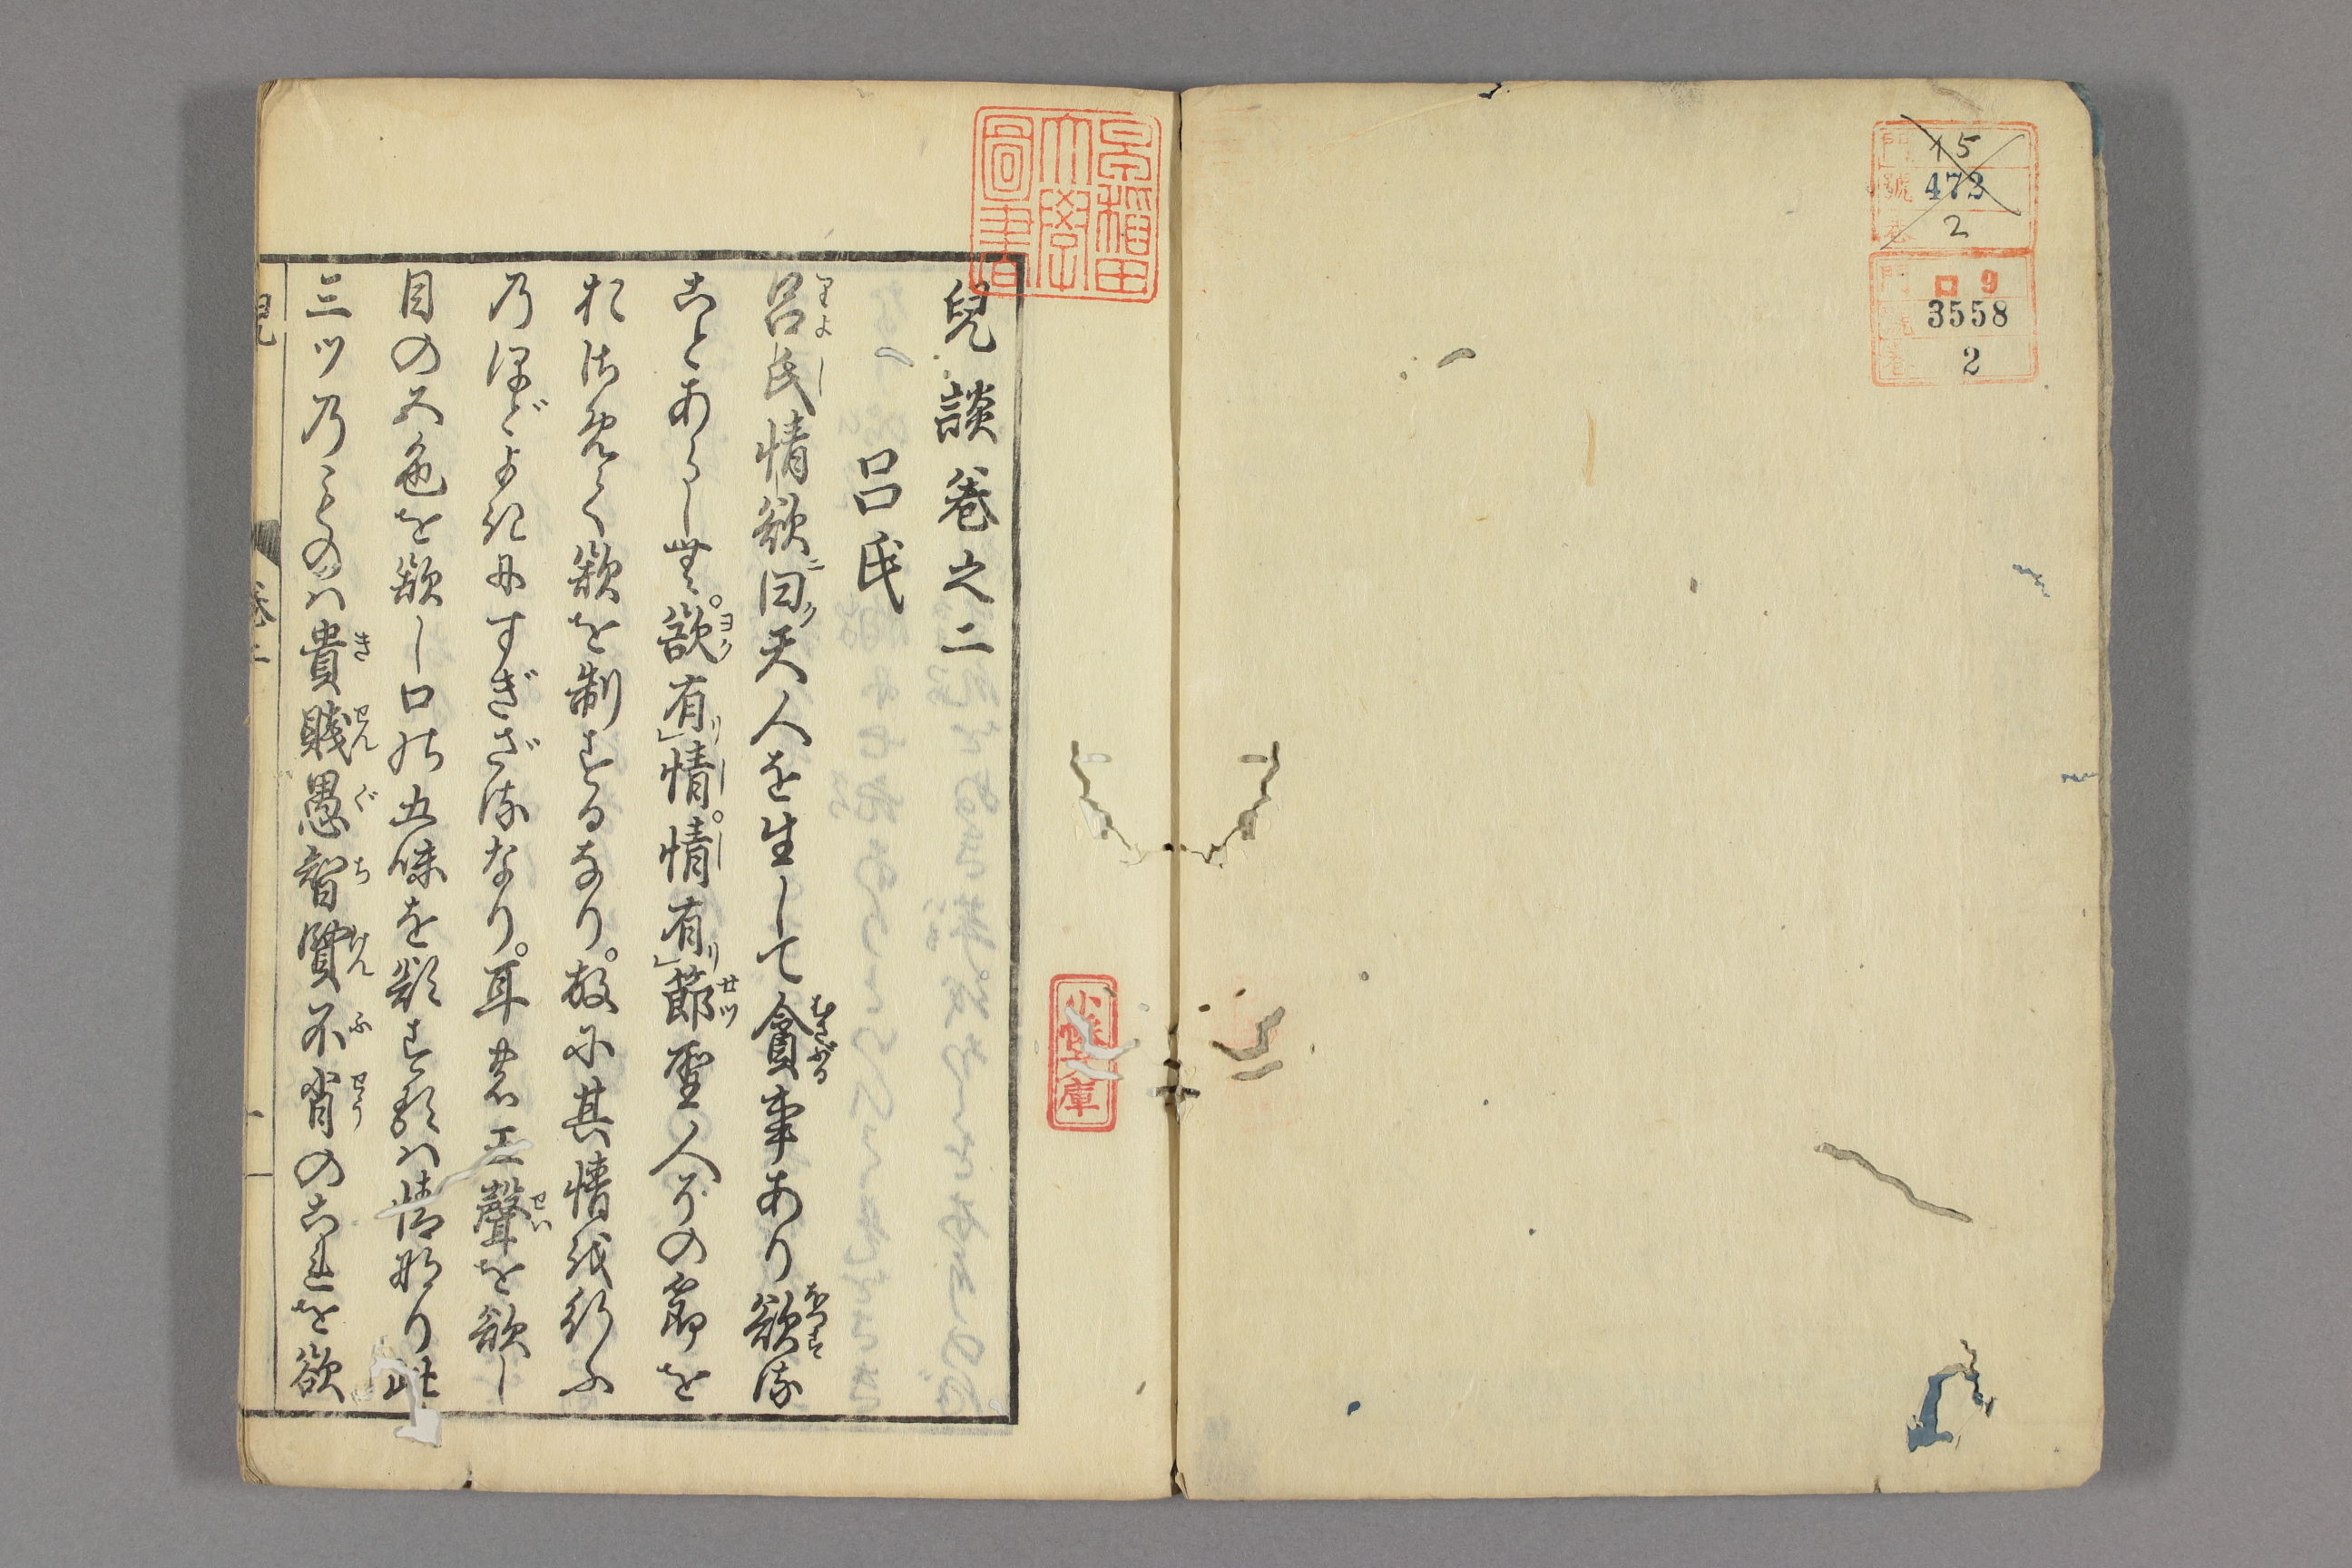 15
473
2
門
口9
3558
2
早稲田
大學
圖書
兒談巻之二
呂氏
呂氏情欲ニ曰ク天人を生して貪事あり欲する
ことあらしむ。欲有リ」情。情有リ」節聖人ハ節を
おさめて欲を制するなり。故に其情を行ふ
乃ほどよきにすぎざるなり。耳の五聲を欲し
目の五色を欲し口の五味を欲するハ情なり此
三ツ乃ものハ貴賤愚智賢不肖のこれを欲
文庫
兒
巻二
一